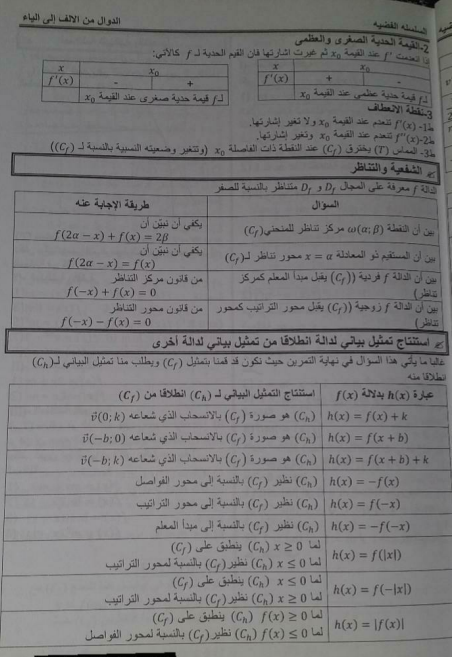 السلسلة الفضية
الدوال من الألف إلى الياء
2-القيمة الحدية الصغرى والعظمى
إذا انعدمت f′ عند القيمة x₀ ثم غيرت اشارتها فان القيم الحدية لـ f كالآتي:
x x₀
f′(x) + -
لـ f قيمة حدية عظمى عند القيمة x₀
x x₀
f′(x) - +
لـ f قيمة حدية صغرى عند القيمة x₀
3-نقطة الانعطاف
ط1- f′(x) تنعدم عند القيمة x₀ ولا تغير إشارتها.
ط2- f″(x) تنعدم عند القيمة x₀ وتغير إشارتها.
ط3- المماس (T) يخترق (C_f) عند النقطة ذات الفاصلة x₀ (وتتغير وضعيته النسبية بالنسبة لـ (C_f))
الشفعية والتناظر
الدالة f معرفة على المجال D_f و D_f متناظر بالنسبة للصفر
السؤال طريقة الإجابة عنه
بين أن النقطة ω(α;β) مركز تناظر للمنحني (C_f)
يكفي أن نبيّن أن
f(2α − x) + f(x) = 2β
بين أن المستقيم ذو المعادلة x = α محور تناظر لـ (C_f)
يكفي أن نبيّن أن
f(2α − x) = f(x)
بين أن الدالة f فردية ((C_f) يقبل مبدأ المعلم كمركز
تناظر)
من قانون مركز التناظر
f(−x) + f(x) = 0
بين أن الدالة f زوجية ((C_f) يقبل محور التراتيب كمحور
تناظر)
من قانون محور التناظر
f(−x) − f(x) = 0
استنتاج تمثيل بياني لدالة انطلاقا من تمثيل بياني لدالة أخرى
غالبا ما يأتي هذا السؤال في نهاية التمرين حيث نكون قد قمنا بتمثيل (C_f) ويطلب منا تمثيل البياني لـ (C_h)
انطلاقا منه
عبارة h(x) بدلالة f(x) استنتاج التمثيل البياني لـ (C_h) انطلاقا من (C_f)
h(x) = f(x) + k (C_h) هو صورة (C_f) بالانسحاب الذي شعاعه v⃗(0; k)
h(x) = f(x + b) (C_h) هو صورة (C_f) بالانسحاب الذي شعاعه v⃗(−b; 0)
h(x) = f(x + b) + k (C_h) هو صورة (C_f) بالانسحاب الذي شعاعه v⃗(−b; k)
h(x) = −f(x) (C_h) نظير (C_f) بالنسبة إلى محور الفواصل
h(x) = f(−x) (C_h) نظير (C_f) بالنسبة إلى محور التراتيب
h(x) = −f(−x) (C_h) نظير (C_f) بالنسبة إلى مبدأ المعلم
h(x) = f(|x|) لما x ≥ 0 (C_h) ينطبق على (C_f)
لما x ≤ 0 (C_h) نظير (C_f) بالنسبة لمحور التراتيب
h(x) = f(−|x|) لما x ≤ 0 (C_h) ينطبق على (C_f)
لما x ≥ 0 (C_h) نظير (C_f) بالنسبة لمحور التراتيب
h(x) = |f(x)| لما f(x) ≥ 0 (C_h) ينطبق على (C_f)
لما f(x) ≤ 0 (C_h) نظير (C_f) بالنسبة لمحور الفواصل